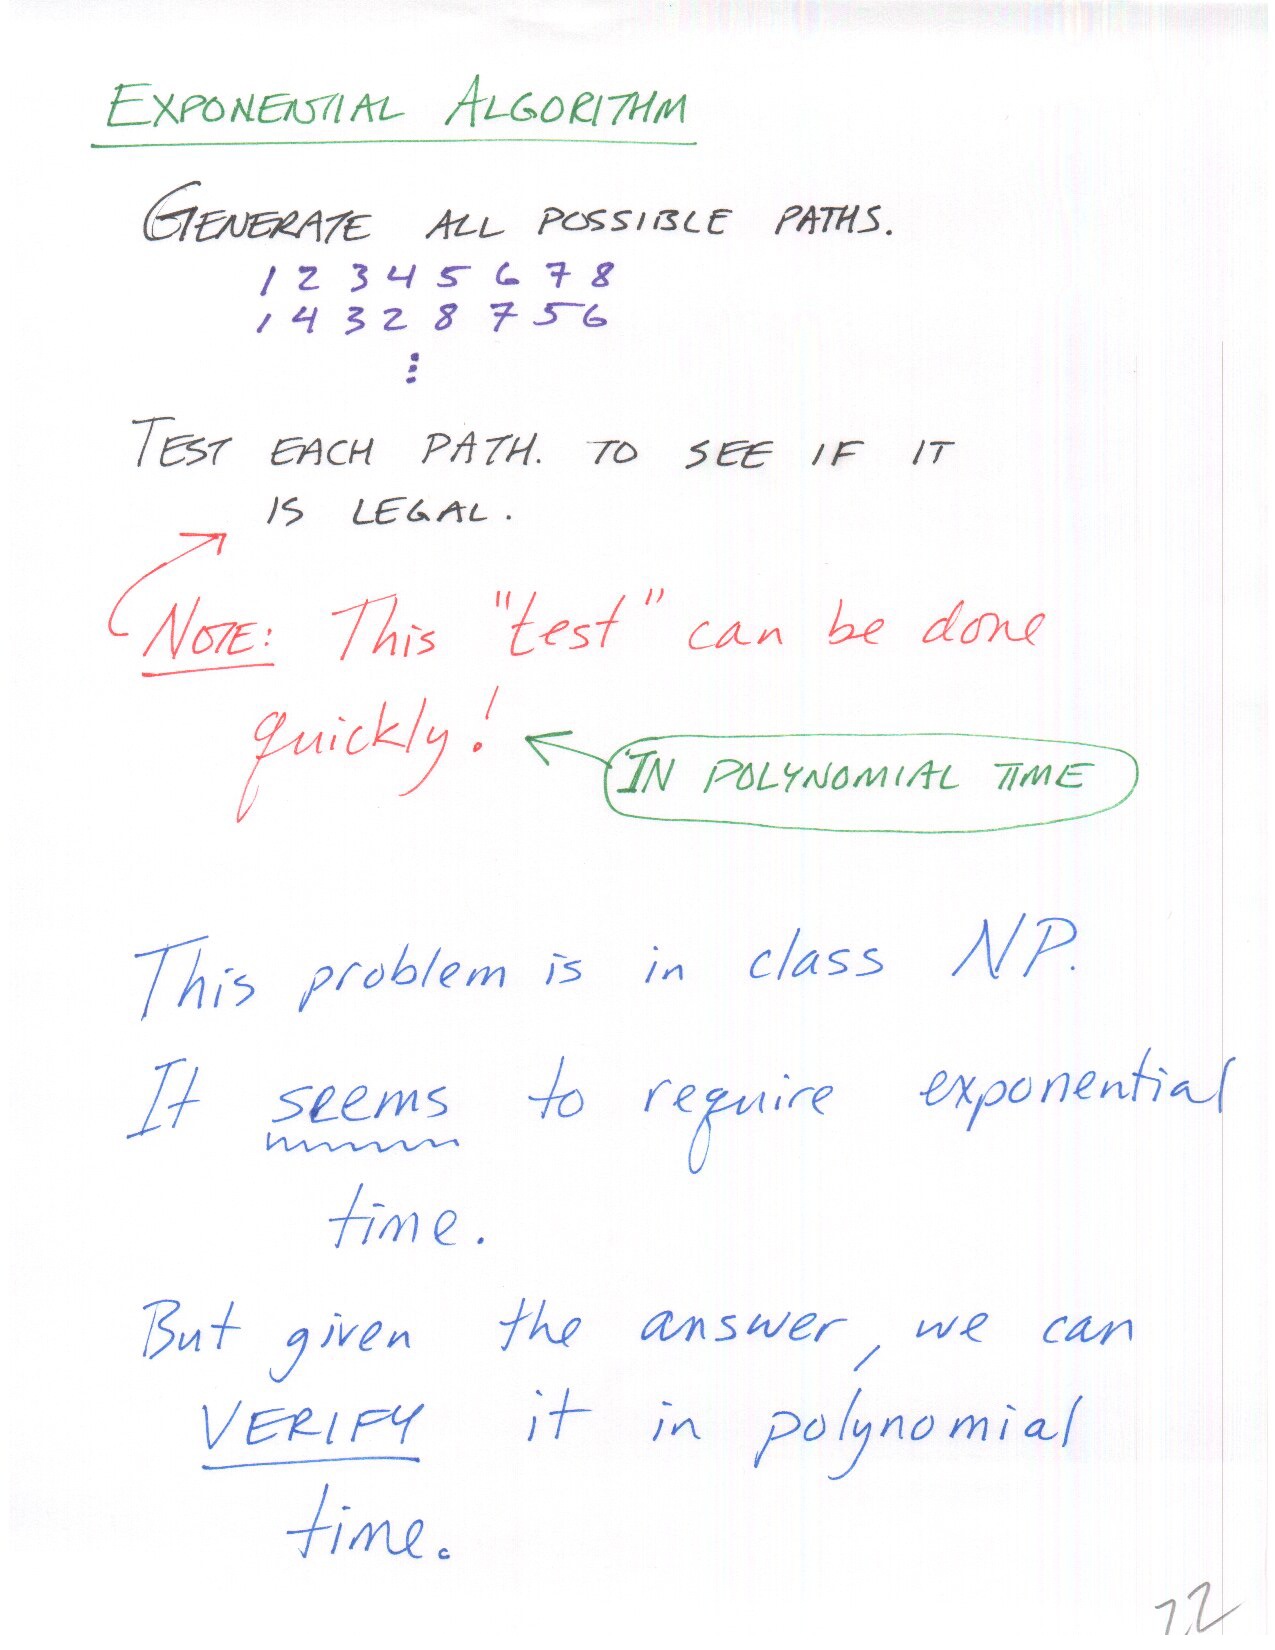 EXPONENTIAL ALGORITHM
GENERATE ALL POSSIBLE PATHS.
1 2 3 4 5 6 7 8
1 4 3 2 8 7 5 6
⋮
TEST EACH PATH. TO SEE IF IT
IS LEGAL.
NOTE: This "test" can be done
quickly!
IN POLYNOMIAL TIME
This problem is in class NP.
It seems to require exponential
time.
But given the answer, we can
VERIFY it in polynomial
time.
22